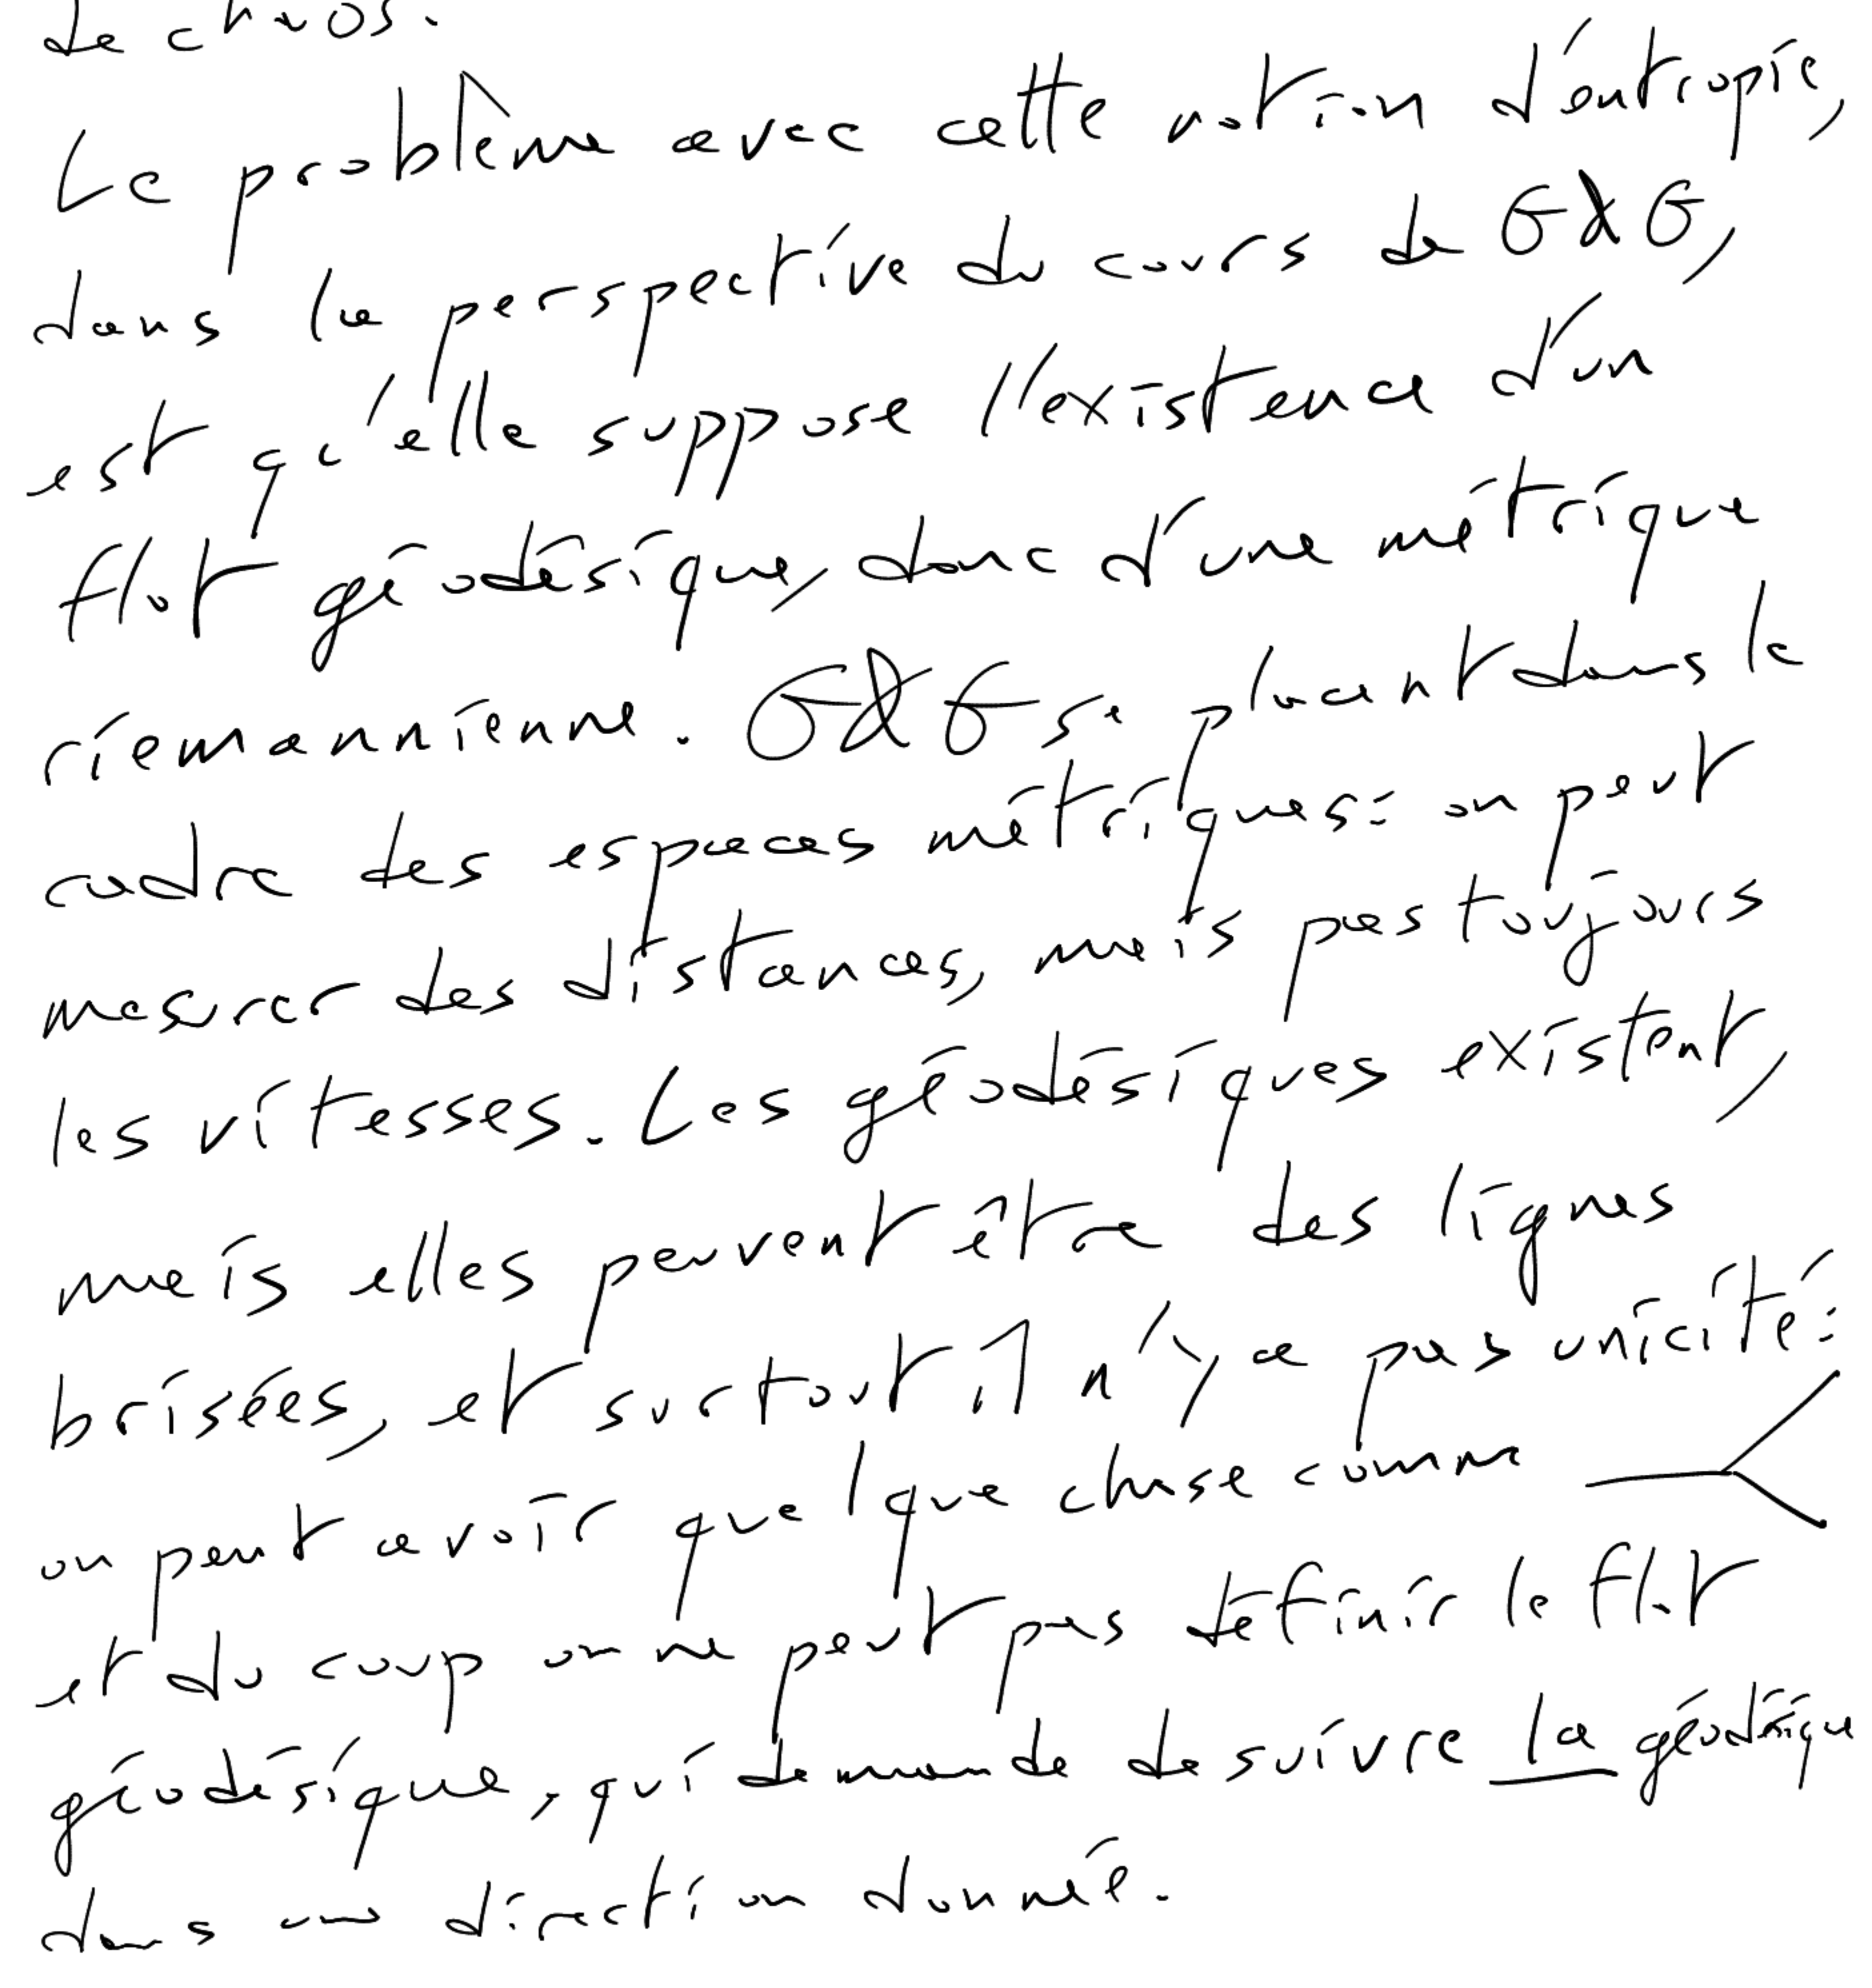 de chaos.
Le problème avec cette notion d'entropie,
dans la perspective du cours de G&G,
est qu'elle suppose l'existence d'un
flot géodésique, donc d'une métrique
riemannienne. G&G se placent dans le
cadre des espaces métriques : on peut
mesurer des distances, mais pas toujours
les vitesses. Les géodésiques existent,
mais elles peuvent être des lignes
brisées, et surtout il n'y a pas unicité :
on peut avoir quelque chose comme
et du coup on ne peut pas définir le flot
géodésique, qui demande de suivre la géodésique
dans une direction donnée.